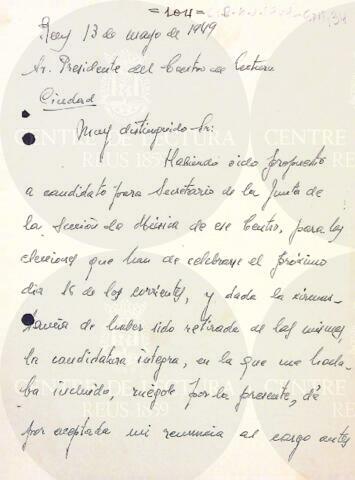 =104=
Reus 13 de mayo de 1949
Sr. Presidente del Centro de Lectura
Ciudad
Muy distinguido Sr:
Habiendo sido propuesto
a candidato para Secretario de la Junta de
la Sección de Música de ese Centro, para las
elecciones que han de celebrarse el próximo
dia 16 de los corrientes, y dada la circuns-
tancia de haber sido retirada de las mismas,
la candidatura integra, en la que me halla-
ba incluido, ruegole por la presente, dé
por aceptada mi renuncia al cargo antes
CENTRE DE LECTURA
REUS 1859